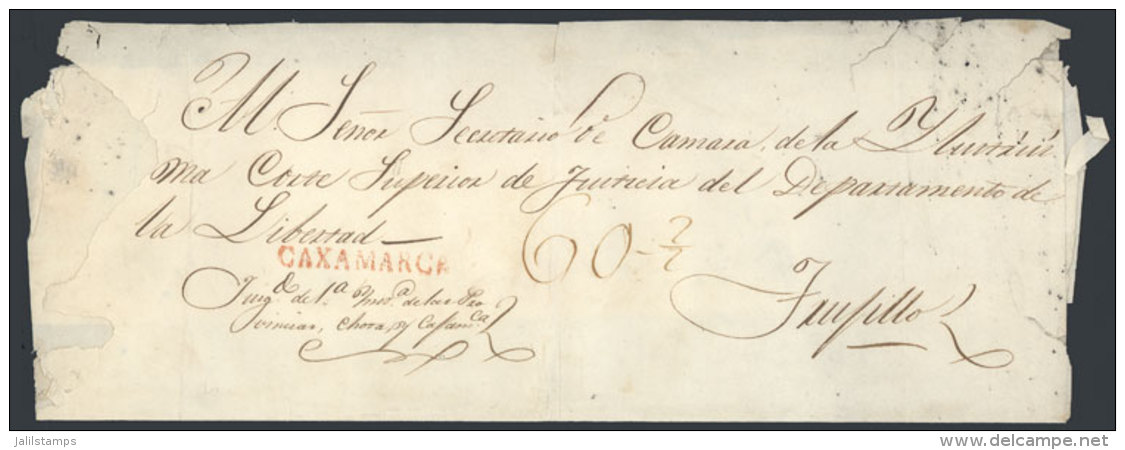 Al Señor Secretario de Camara de la Ylustrisi
ma Corte Superior de Justicia del Departamento de
la Libertad
CAXAMARCA
60-2/2
Juzg.º de 1.ª Yns.ª de las Pro
vincias, Chota, y Cajam.ca
Trujillo
jalilstamps
www.delcampe.net